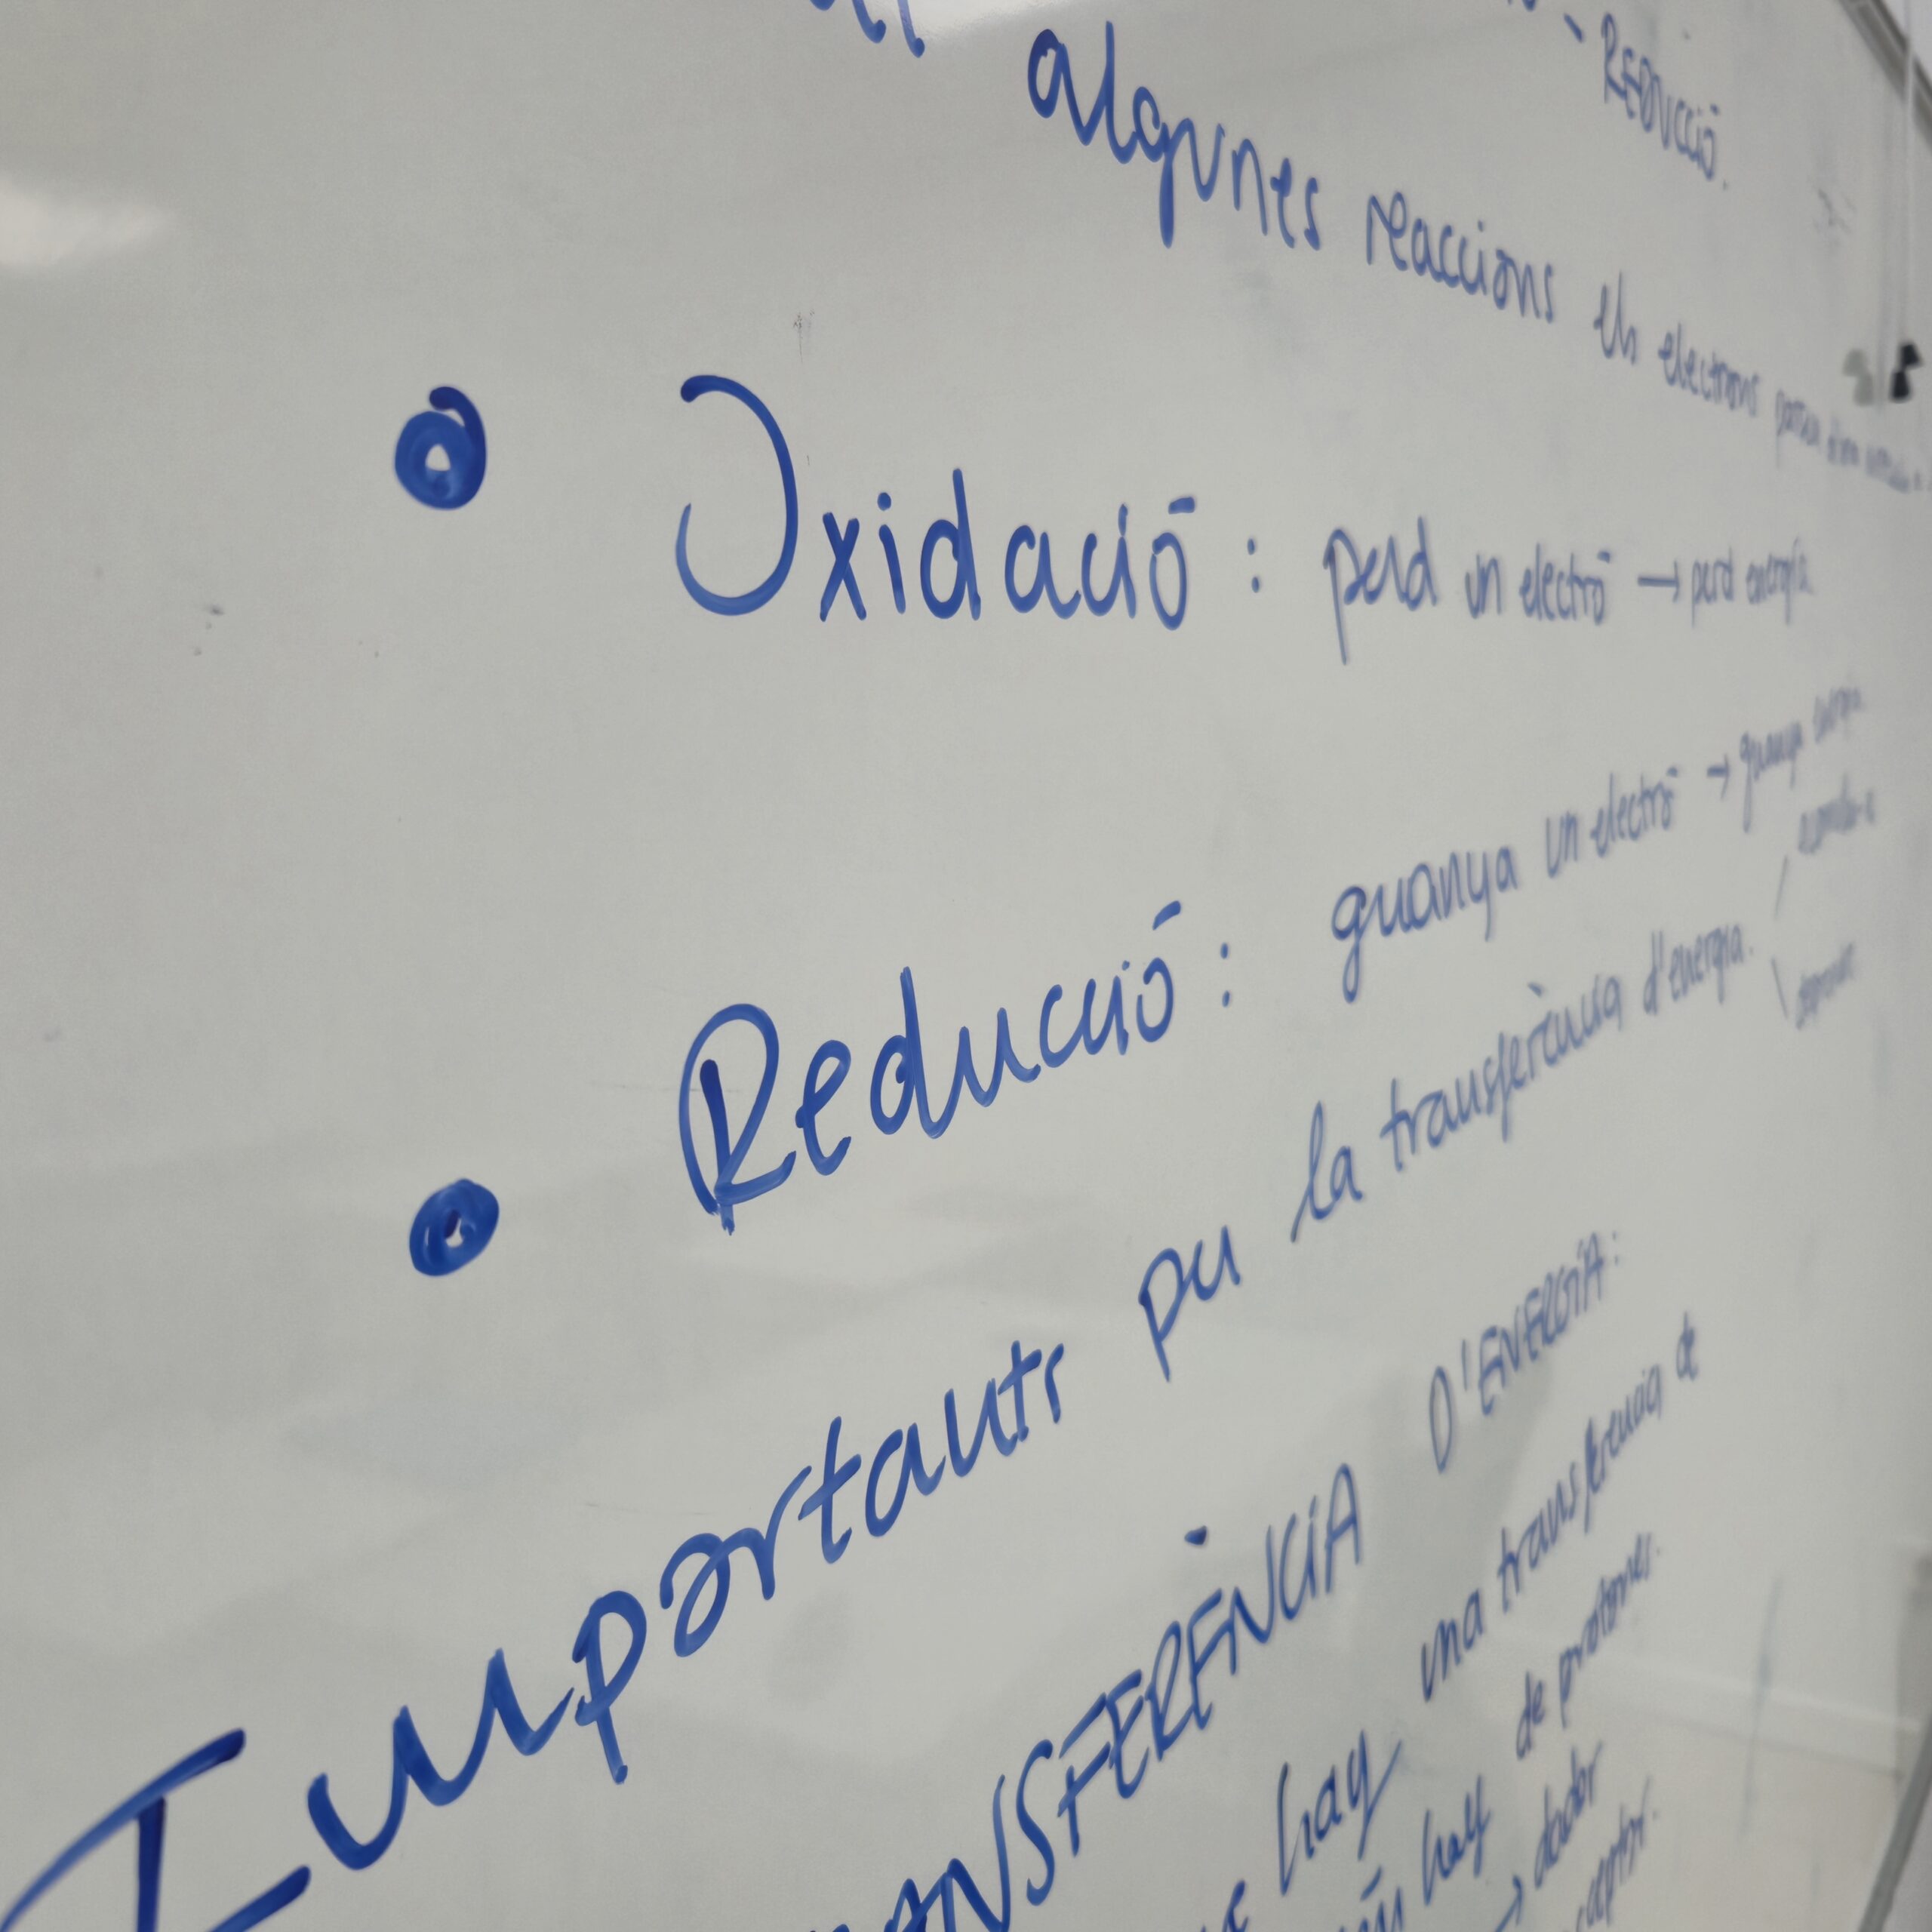 - REDUCCIÓ.
algunes reaccions els electrons
• Oxidació: perd un electró → perd energia
• Reducció: guanya un electró → guanya energia
Importants per la transferència d'energia.
TRANSFERÈNCIA D'ENERGIA:
hay una transferencia de
hay de protones.
→ dador